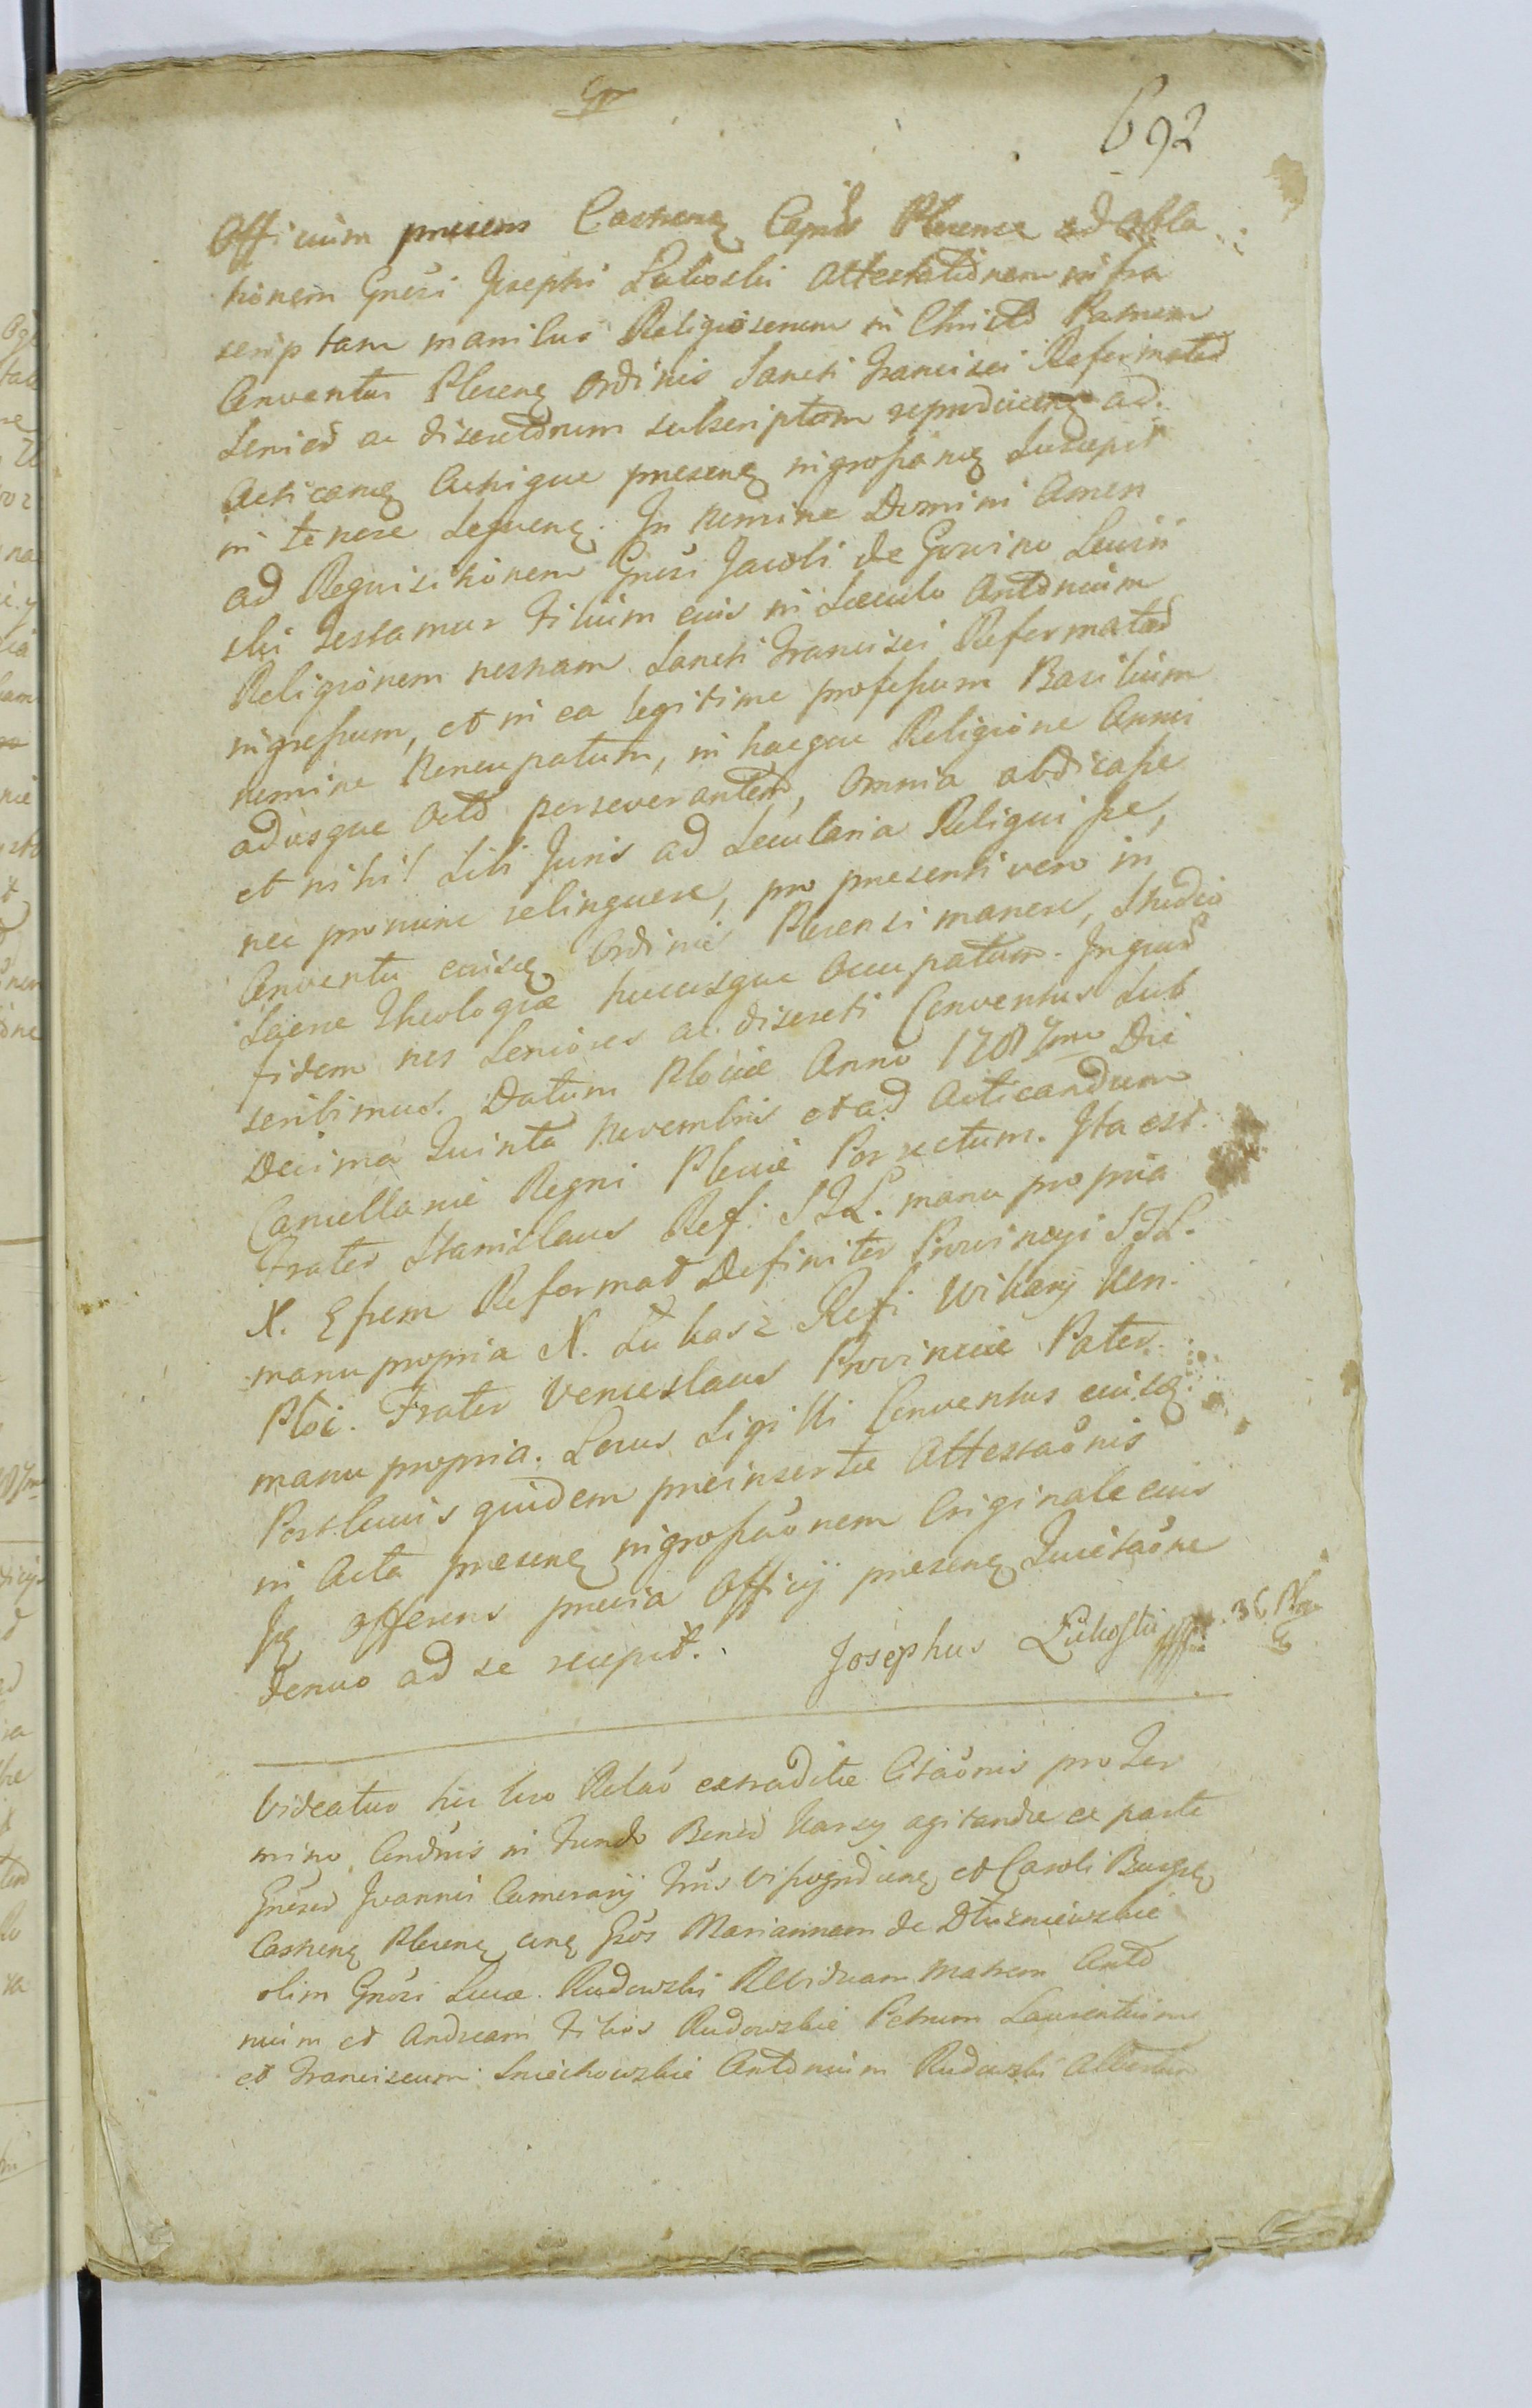 692
Officium presens Castrense Capitle Plocense ad obla
tionem Gnosi Josephi Lukoski Attestationem infra
scriptam manibus Religiosorum in Christo Patrum
Conventus Plocens Ordinis Sancti Francisci Reformator
Senior ac discretorum subscriptam reproducens ad
Acticand Actisque presens ingrossand Suscepit
in tenore sequens. In Nomine Domini Amen
ad Requisitionem Gnosi Jacobi de Gorino
ski Testamur Filium eius in Sæculo Antonium
Religionem nostram Sancti Francisci Reformator
ingressum, et in ea legitime professum Basilium
nomine Nuncupatum, in hacque Religione Annis
adusque Octo perseverantem, Omnia abdicasse
et nihil Sibi Juris ad Secularia Reliquisse,
nec pro nunc relinquere, pro presenti vero in
Conventu eiusdem Ordinis Plocensi manere, Studio
Sacræ Theologiæ hucusque Occupatum. In quor
fidem nos Seniores ac discreti Conventus Sub
scribimus. Datum Plociæ Anno 1787mo Die
Decima Quinta Novembris et ad Acticandum
Cancellariæ Regni Plociæ Porrectum. Ita est.
Frater Stanislaus Ref: manu propria
X. Efrem Reformat Definitor Prowincyi
manu propria X. Łukasz Ref: Wikary Kon.
Ploc. Frater Venceslaus Provinciæ Pater
manu propria. Locus Sigilli Conventus eiusd
Post cuius quidem preinsertæ Attestaonis
in Acta presens ingrossaonem Originale eius
Idem Offerens previa Officij presens Quietaone
denuo ad se recepit. Josephus Łukoski

Videatur hic loco Relao extraditæ Citaonis pro Ter
mino Condnis in Fundo Bonor Karsy agitandæ ex parte
Gnosor Joannis Camerarij et Caroli Burgr
Castrens Plocens Gsos Mariannam de Dłużniewskie
olim Gnosi Lucæ Rudowski Relictam Viduam Matrem Anto
nium et Andream Filios Rudowskie Petrum Laurentium
et Franciscum Sniechowskie Antonium Rudowski Albertum